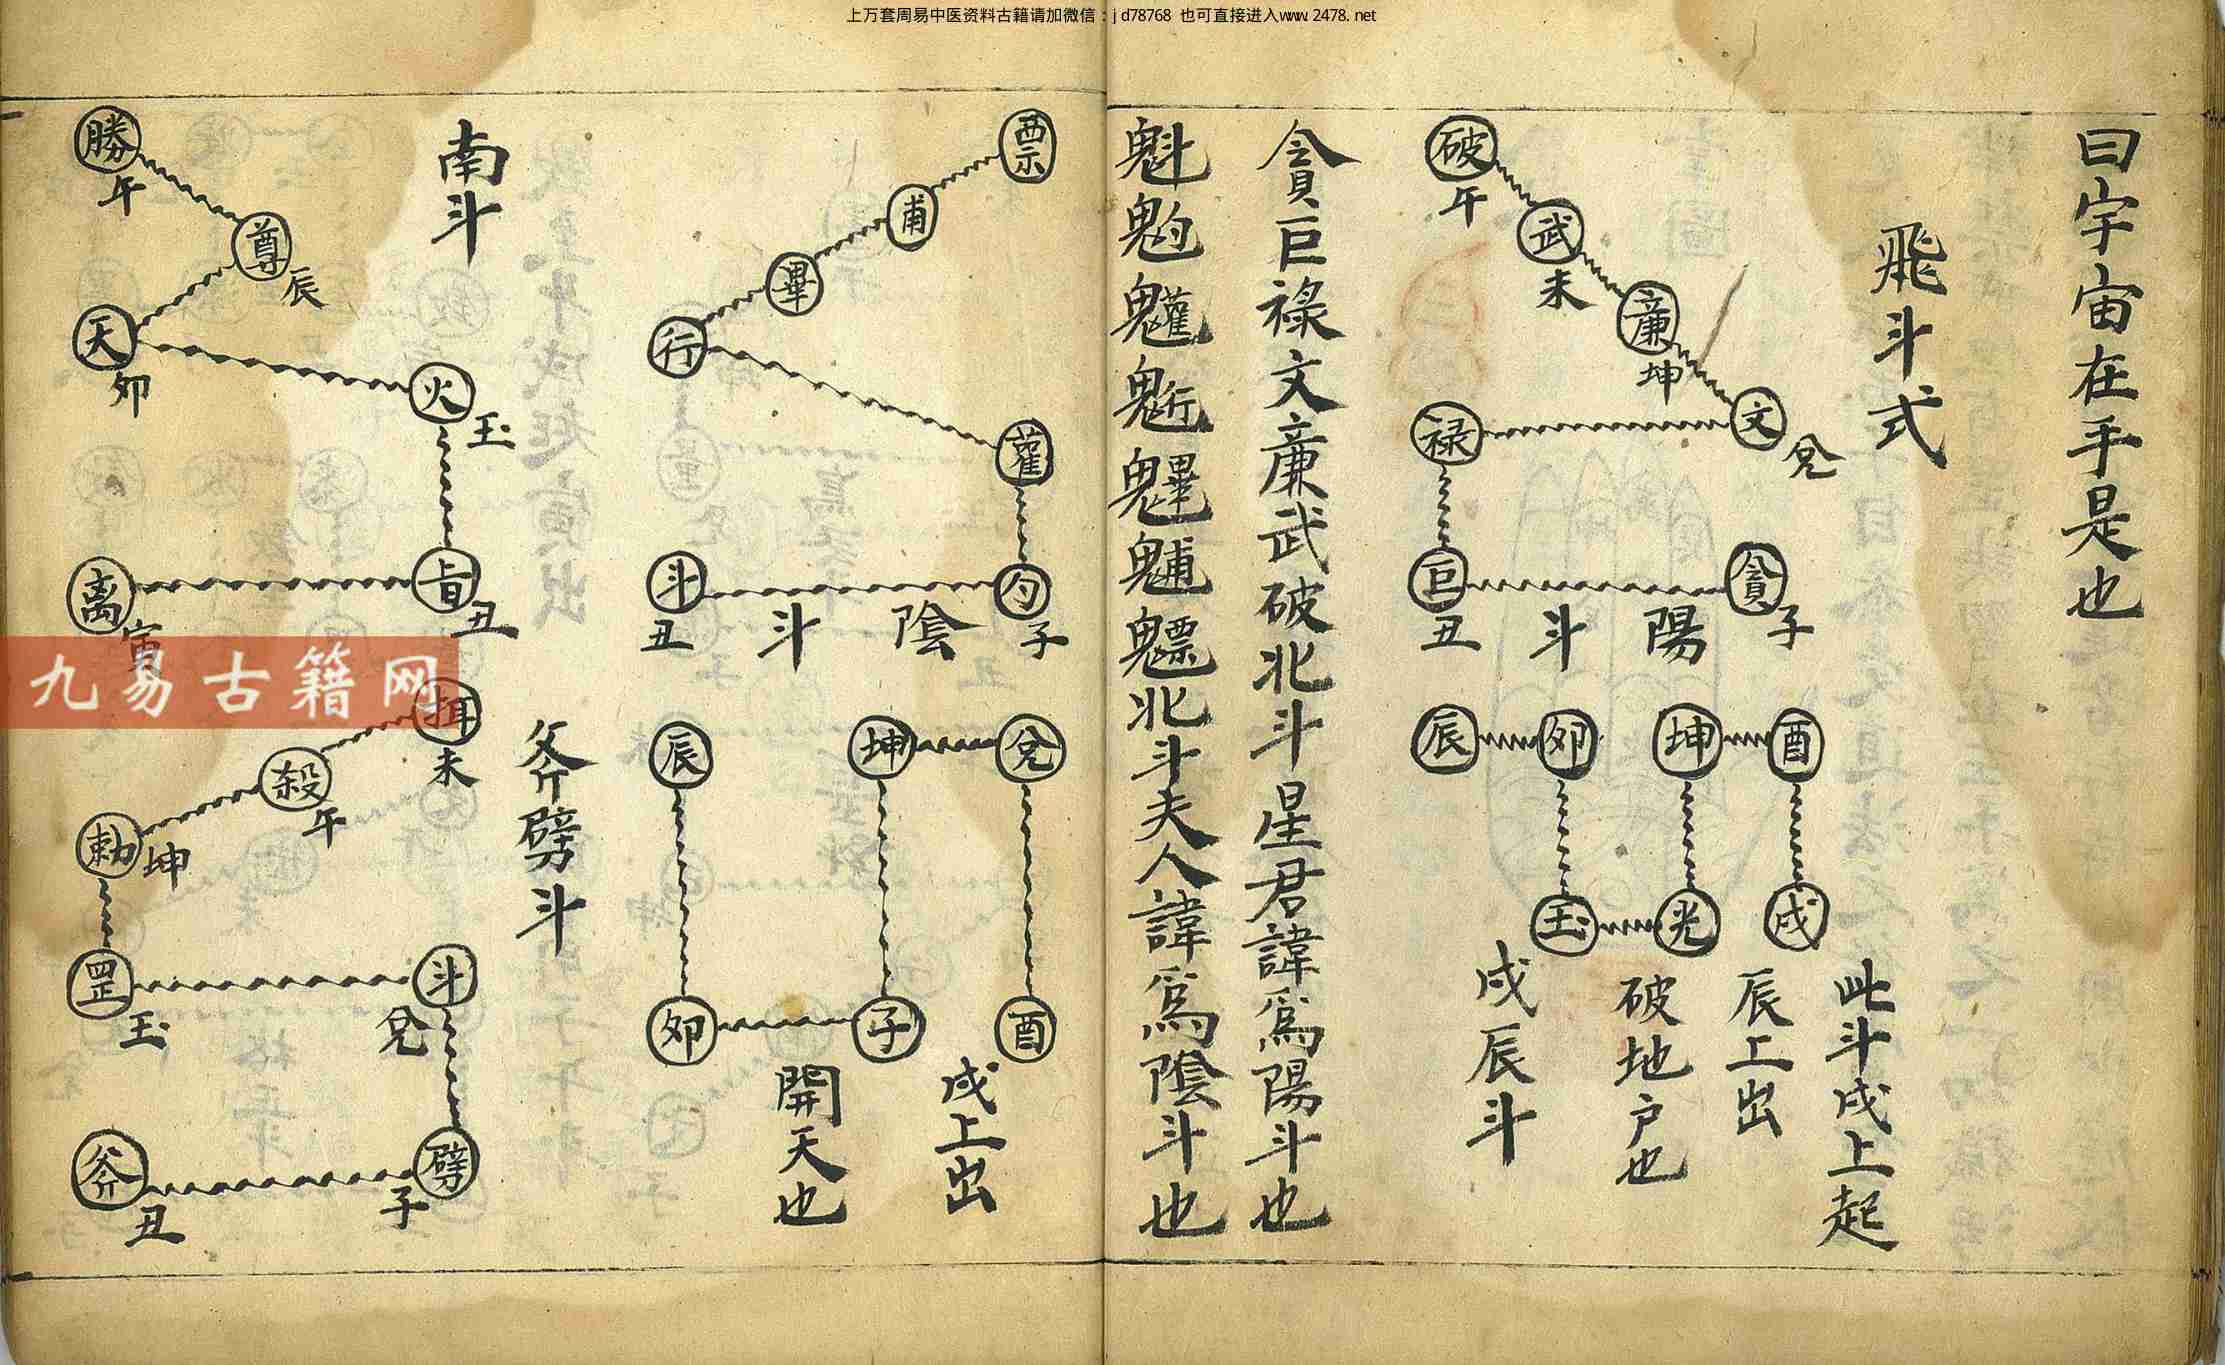 上万套周易中医资料古籍请加微信：jd78768 也可直接进入www.2478.net
曰宇宙在手是也
飛斗式
破
午
武
未
廉
坤
文
兌
禄
巨
丑
貪
子
陽
斗
酉
坤
卯
辰
戌
光
玉
此斗戌上起
辰上出
破地户也
戌辰斗
貪巨禄文廉武破北斗星君諱爲陽斗也
魁䰢魓北斗夫人諱爲陰斗也
票
甫
畢
行
雚
勺
子
斗
丑
陰
斗
兌
坤
辰
酉
子
卯
戌上出
開天也
南斗
勝
午
尊
辰
天
卯
火
玉
丑
离
寅
斧劈斗
未
殺
午
勅
坤
罡
玉
斗
兌
劈
子
斧
丑
九易古籍网